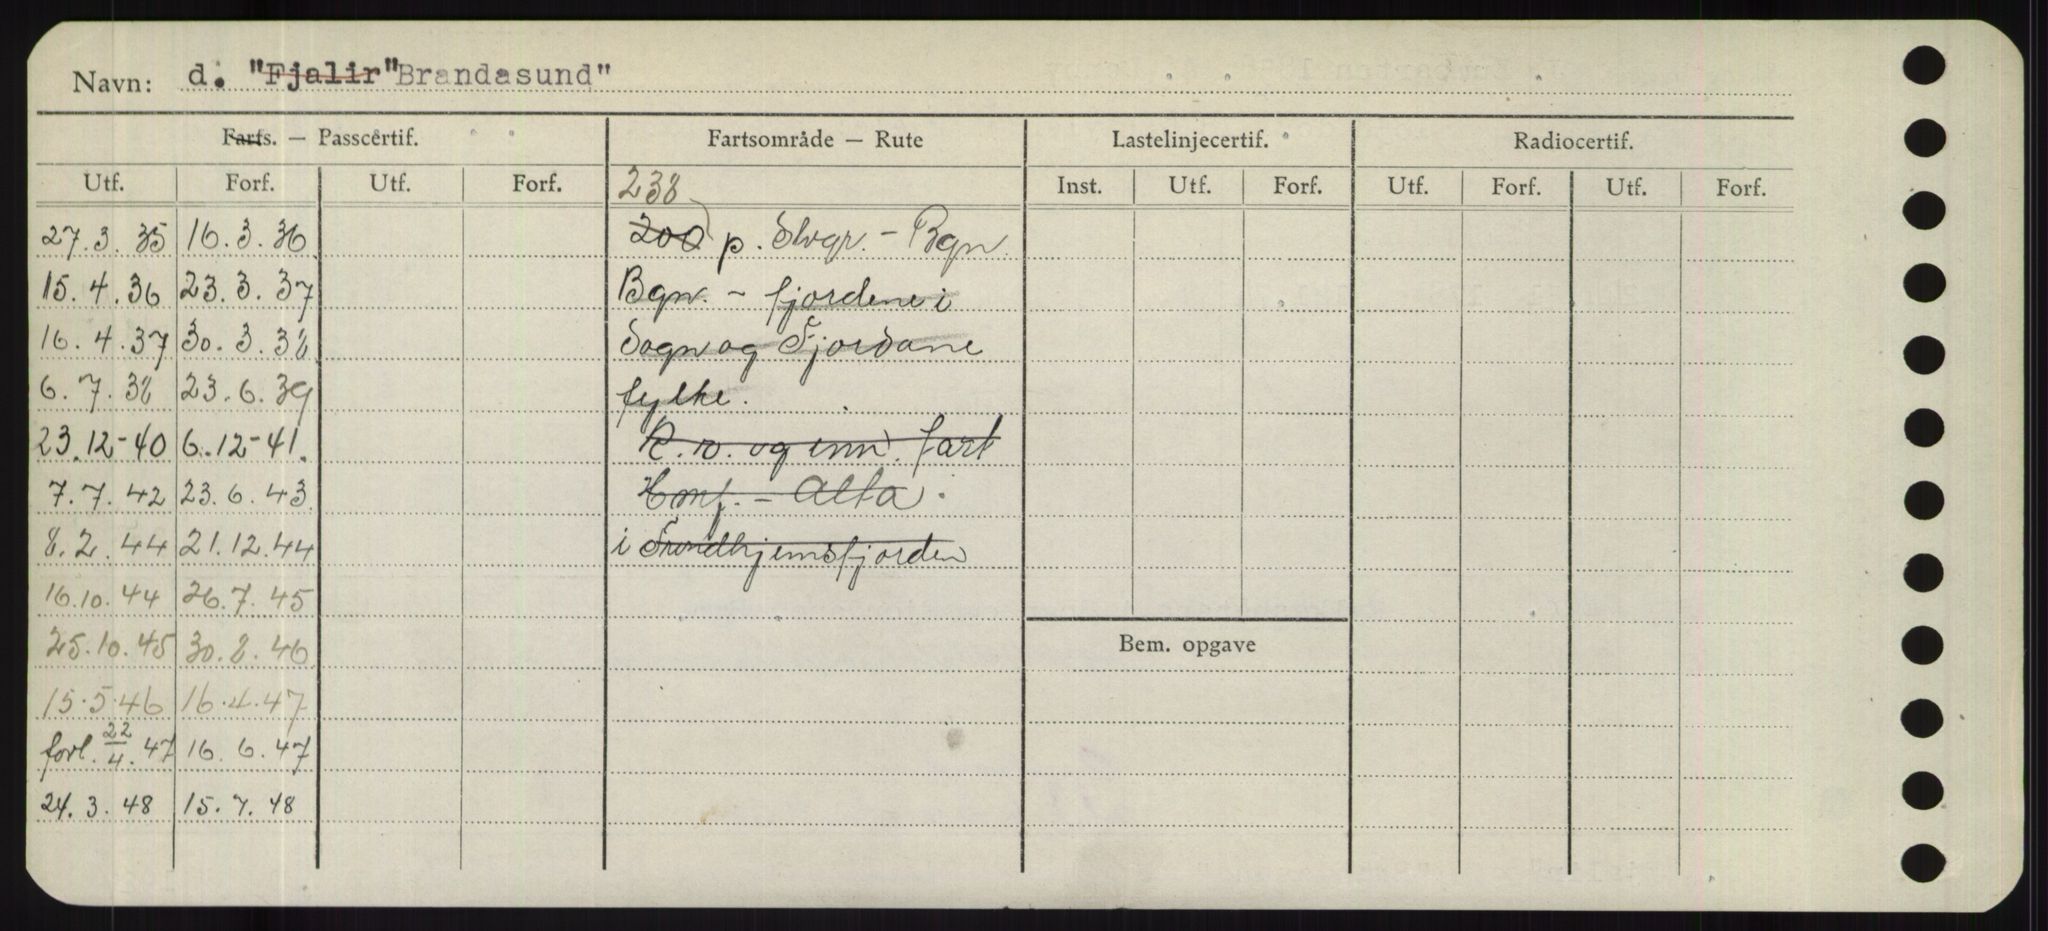 Navn: d. "Fjalir" Brandasund"
Farts. — Passcertif. Fartsområde — Rute Lastelinjecertif. Radiocertif.
Utf. Forf. Utf. Forf. 238 Inst. Utf. Forf. Utf. Forf. Utf. Forf.
27.3.35 16.3.36 200 p. Stvgr. - Bgn
15.4.36 23.3.37 Bgn. - fjordene i
16.4.37 30.3.38 Sogn og Fjordane
6.7.38 23.6.39 fylke.
23.12-40 6.12-41. R.v. og inn. fart
7.7.42 23.6.43 Honf. - Alta.
8.2.44 21.12.44 i Trondhjemsfjorden
16.10.44 26.7.45
25.10.45 30.8.46 Bem. opgave
15.5.46 16.4.47
forl. 22/4.47 16.6.47
24.3.48 15.7.48